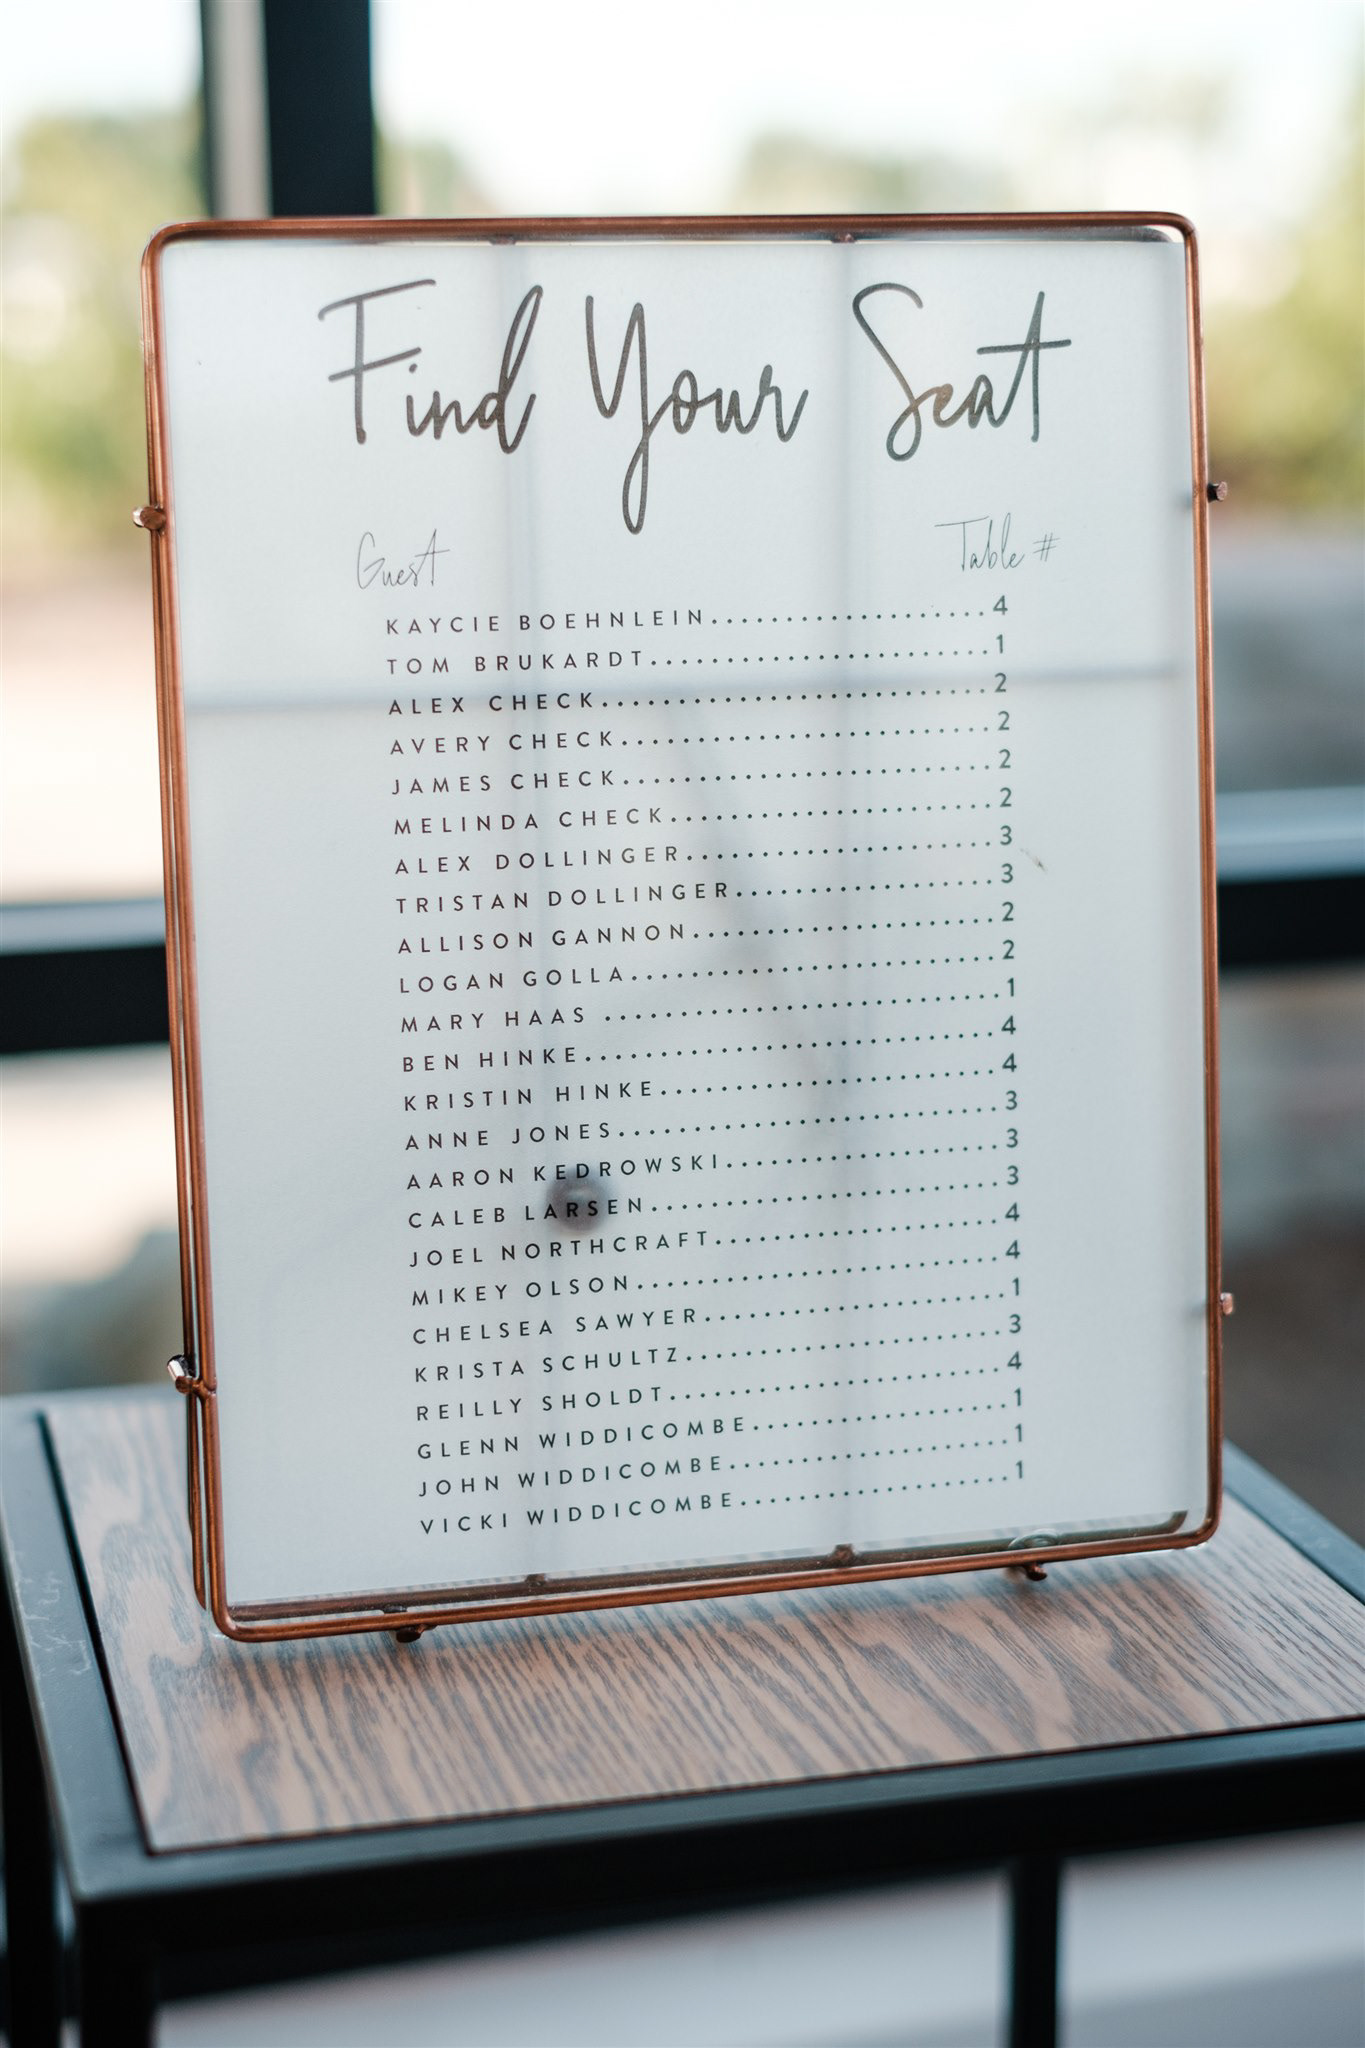 Find Your Seat
Guest Table #
KAYCIE BOEHNLEIN..................4
TOM BRUKARDT......................1
ALEX CHECK.........................2
AVERY CHECK........................2
JAMES CHECK........................2
MELINDA CHECK.....................2
ALEX DOLLINGER....................3
TRISTAN DOLLINGER.................3
ALLISON GANNON....................2
LOGAN GOLLA........................2
MARY HAAS ..........................1
BEN HINKE...........................4
KRISTIN HINKE......................4
ANNE JONES.........................3
AARON KEDROWSKI..................3
CALEB LARSEN.......................3
JOEL NORTHCRAFT...................4
MIKEY OLSON........................4
CHELSEA SAWYER....................1
KRISTA SCHULTZ.....................3
REILLY SHOLDT......................4
GLENN WIDDICOMBE.................1
JOHN WIDDICOMBE...................1
VICKI WIDDICOMBE..................1